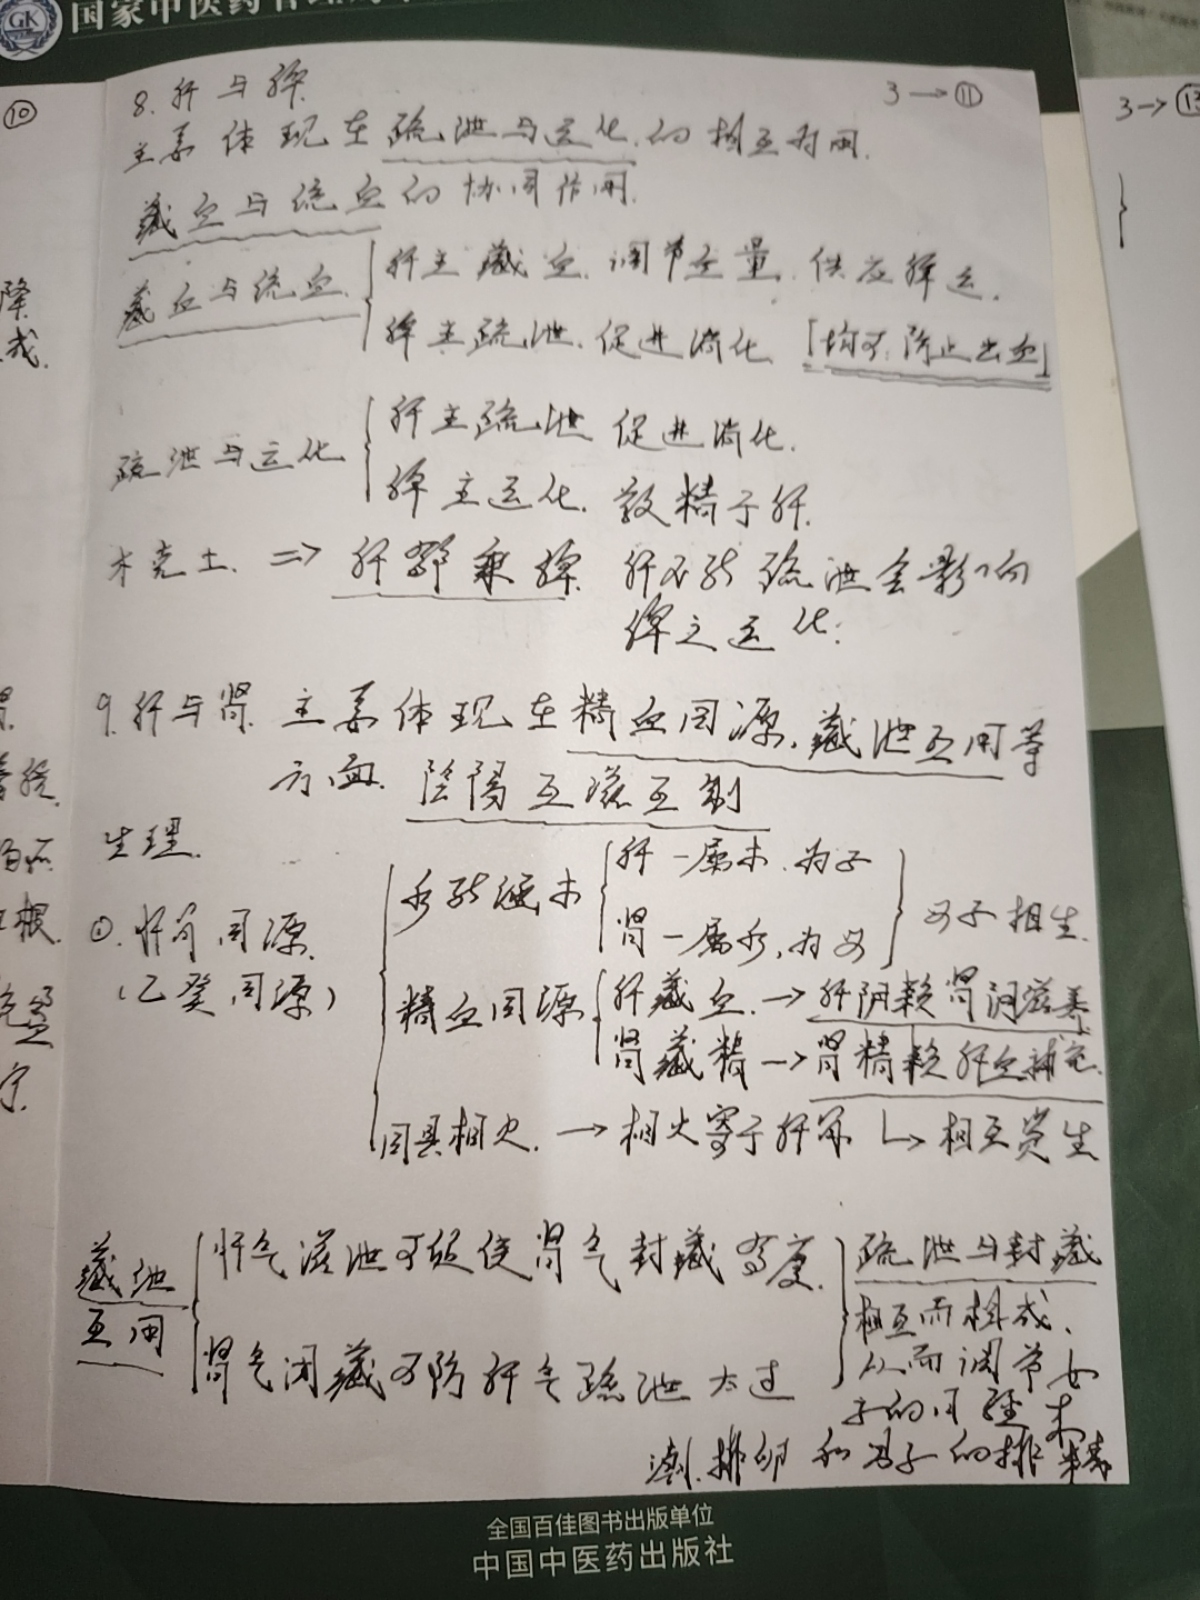 国家中医药管
GK
⑩
3→⑪
3→⑬
8.肝与脾
主要体现在疏泄与运化的相互为用.
藏血与统血的协同作用.
藏血与统血. 肝主藏血.调节血量.供应脾运.
脾主疏泄.促进消化 [均可防止出血]
疏泄与运化 肝主疏泄 促进消化.
脾主运化. 散精于肝.
木克土. => 肝郁乘脾. 肝不能疏泄会影响
脾之运化:
9.肝与肾. 主要体现在精血同源.藏泄互用等
方面. 陰陽互滋互制
生理.
①.肝肾同源.
(乙癸同源)
水能涵木 肝—属木.为子
肾—属水,为母
母子相生.
精血同源 肝藏血.→肝阴赖肾阴滋养
肾藏精→肾精赖肝血补充.
同具相火.→相火寄于肝肾 ↳相互资生
藏泄
互用
肝气疏泄可促使肾气封藏有度.
肾气闭藏可防肝气疏泄太过
疏泄与封藏
相互而相成.
从而调节女
子的月经来
潮.排卵和男子的排精
降
成.
根.
全国百佳图书出版单位
中国中医药出版社